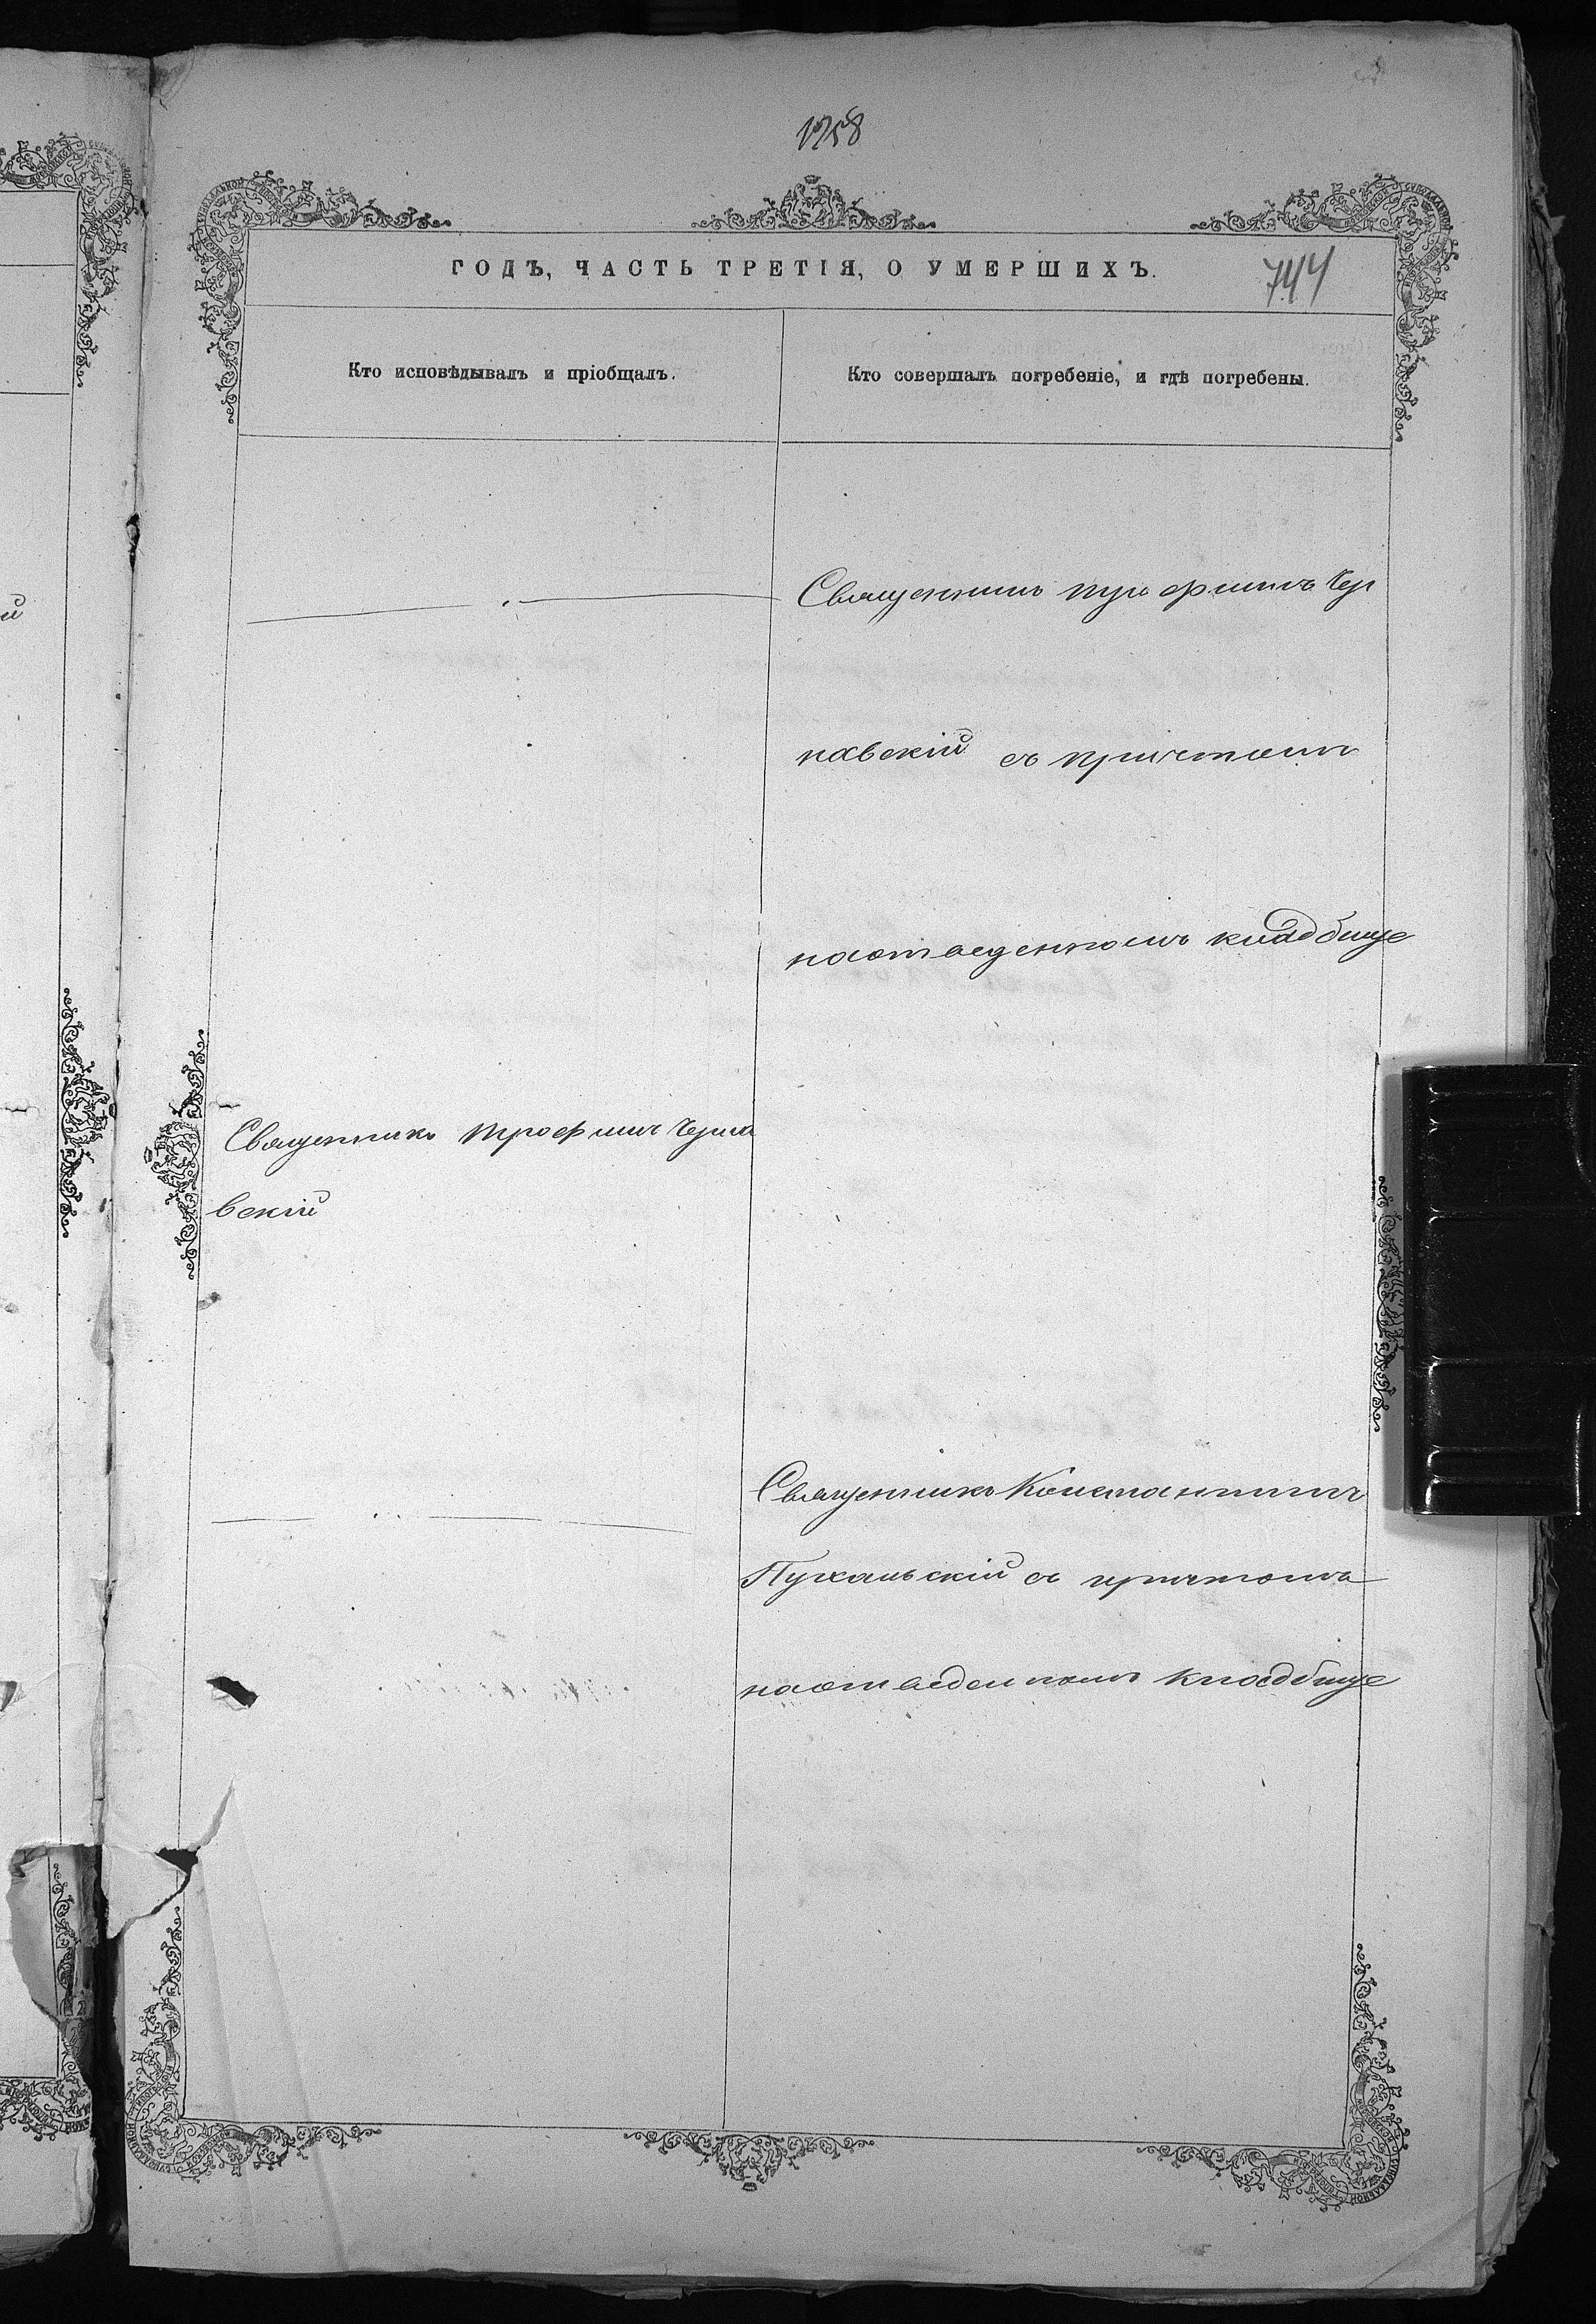 1758
ГОДЪ, ЧАСТЬ ТРЕТІЯ, О УМЕРШИХЪ.
744
Кто исповѣдывалъ и пріобщалъ.
Кто совершалъ погребеніе, и гдѣ погребены.
Священникъ Трофимъ Чер
навскій съ причтомъ
на отведенномъ кладбище
Священникъ Трофимъ Черна
вскій
Священникъ Константинъ
Пухальскій съ причтомъ
на отведенномъ кладбище